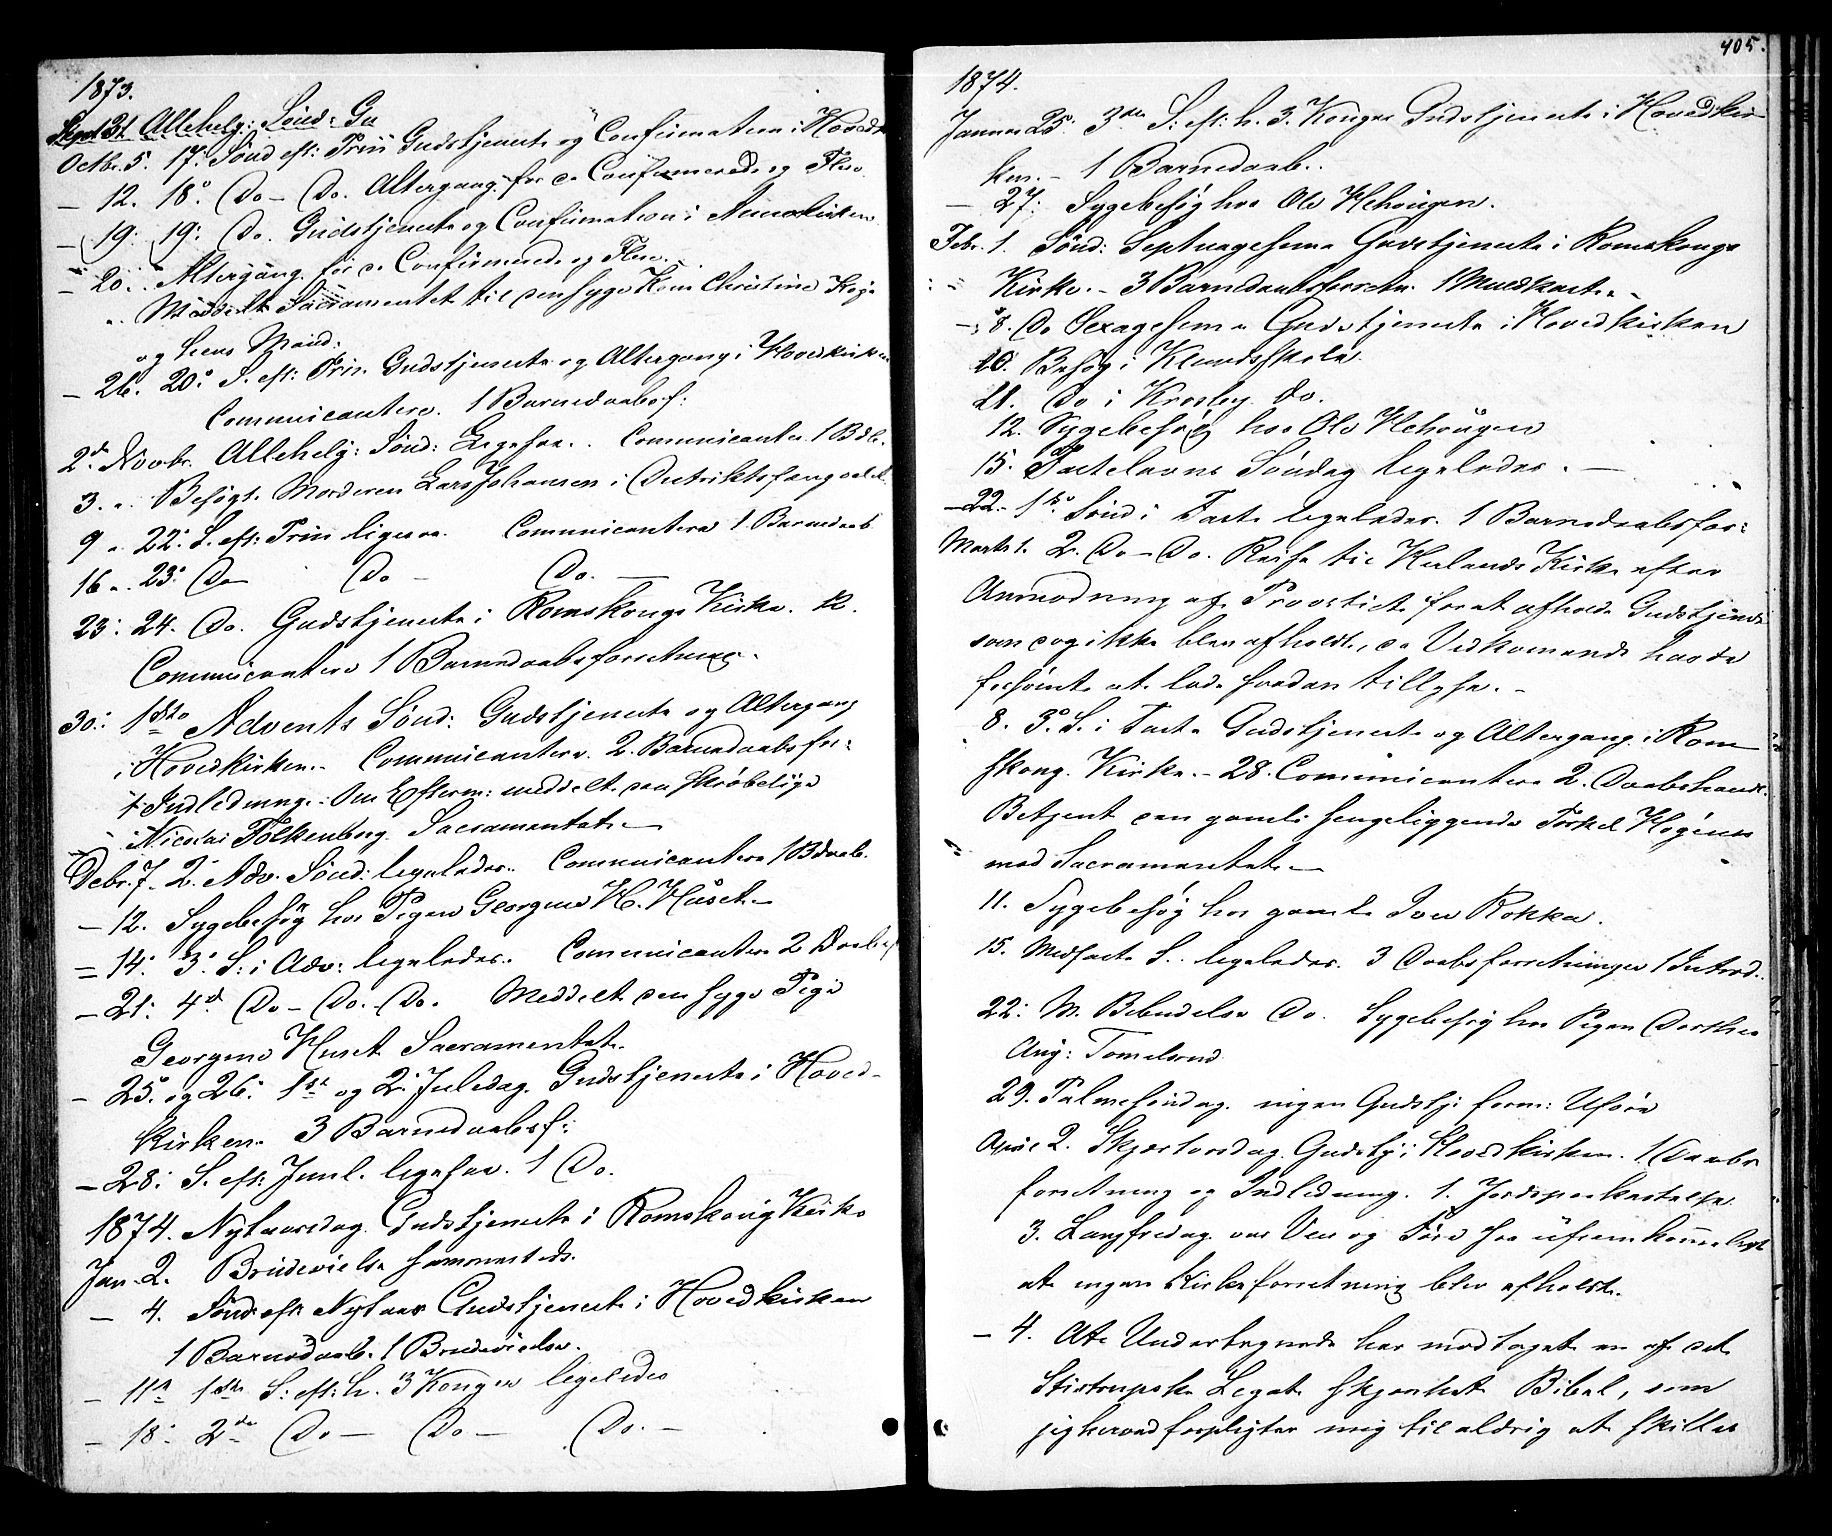 1873.
Sept 31 Allehelg: Sønd: Gu
Octbr. 5. 17. Sønd eft: Trin Gudstjeneste og Confirmation i Hovedk
— 12. 18. Do – Do. Altergang for de Confirmerede og Flere.
— 19. 19. Do. Gudstjeneste og Confirmation i
— 20. Altergang for de Confirmerede og Flere.
" Meddelt Sacramentet til den syge Kone Christine
og hens Mand.
— 26. 20. S. eft: Trin. Gudstjeneste og Altergang i Hovedkirken
Communicantere. 1 Barnedaabsf:
2d Novbr. Allehelg: Sønd: Ligesaa. Communicanter. 1 Bdb.
3. " Besøgt Morderen Lars Johansen i Distriktsfængselet
9 " 22. S. eft: Trin ligesaa. Communicantere 1 Barnedaab
16 " 23. Do Do – Do. –
23. 24. Do. Gudstjeneste i Romskougs Kirke. R.
Communicantere 1 Barnedaabsforretning.
30. 1ste Advents Sønd: Gudstjeneste og Altergang
i Hovedkirken. Communicantere. 2. Barnedaabsfor:
1 Indledning. Om Efterm: meddelt den skrøbelige
Nicolai Folkenborg Sacramentet. —
Debr. 7. 2. Adv. Sønd: ligeledes. Communicantere 1 Bdaab.
— 12. Sygebesøg hos Pigen Georgine H. Huset. –
= 14. 3. S: i Adv: ligeledes. Communicantere 2 Daabsf
— 21. 4d Do – Do. Do. Meddelt den syge Pige
Georgine Huset Sacramentet.
— 25. og 26. 1ste og 2. Juledag. Gudstjeneste i Hoved-
kirken. 3 Barnedaabsf:
— 28. S. eft: Juul. ligesaa. 1 Do.
1874. Nytaarsdag. Gudstjeneste i Romskoug Kirke
Jan. 2. Brudevielse sammesteds.
— 4. Sønd eft Nytaar Gudstjeneste i Hovedkirken
1 Barnedaab. 1 Brudevielse.
— 11. 1ste S: eft: h. 3 Konger ligeledes
— 18. 2de Do — Do — Do. —
405.
1874.
Januar 25. 3die S: eft. h. 3. Konger Gudstjeneste i Hovedkir
ken. – 1 Barnedaab.
— 27. Sygebesøg hos Ole
Febr. 1. Sønd: Septuagesima Gudstjeneste i Romskougs
Kirke. – 3 Barnedaabsforretn.
— 8. Do Sexagesima Gudstjeneste i Hovedkirken
10. Besøg i Klundsskole
11. Do i Krosby Do.
12. Sygebesøg hos Ole
15. Fastelavns Søndag ligeledes. —
— 22. 1ste Sønd i Faste ligeledes. 1 Barnedaabsfor:
Marts 1. 2. Do – Do. Reise til Herlands Kirke efter
Anmodning af Provstiet for at afholde Gudstjeneste
som dog ikke blev afholdt, da Vedkomende havde
forsømt at lade saadan tillyse. –
8. 3. S. i Faste Gudstjeneste og Altergang i Rom
skoug. Kirke. – 28. Comunicantere 2. Daabshandl.
Betjent den gamle sengeliggende Torkel
med Sacramentet. —
11. Sygebesøg hos gamle Iver Kokken.
15. Midfaste S. ligeledes. 3 Daabsforretninger 1 Introd.
22. M. Bebudelse Do. Sygebesøg hos Pigen Dorthea
Aug: Tomelsrud
29. Palmesøndag. ingen Gudstj: form: Uføre
April 2. Skjærtorsdag. Gudstj: i Hovedkirken. 1 Daabs
forretning og Indledning. 1. Jordspaakastelse
3. Langfredag. var Vei og Føre saa ufremkommeligt
at ingen Kirkeforretning blev afholdt.
— 4. At Undertegnede har modtaget en af det
Stistrupske Legat skjenket Bibel, som
jeg herved forpligter mig til aldrig at skilles